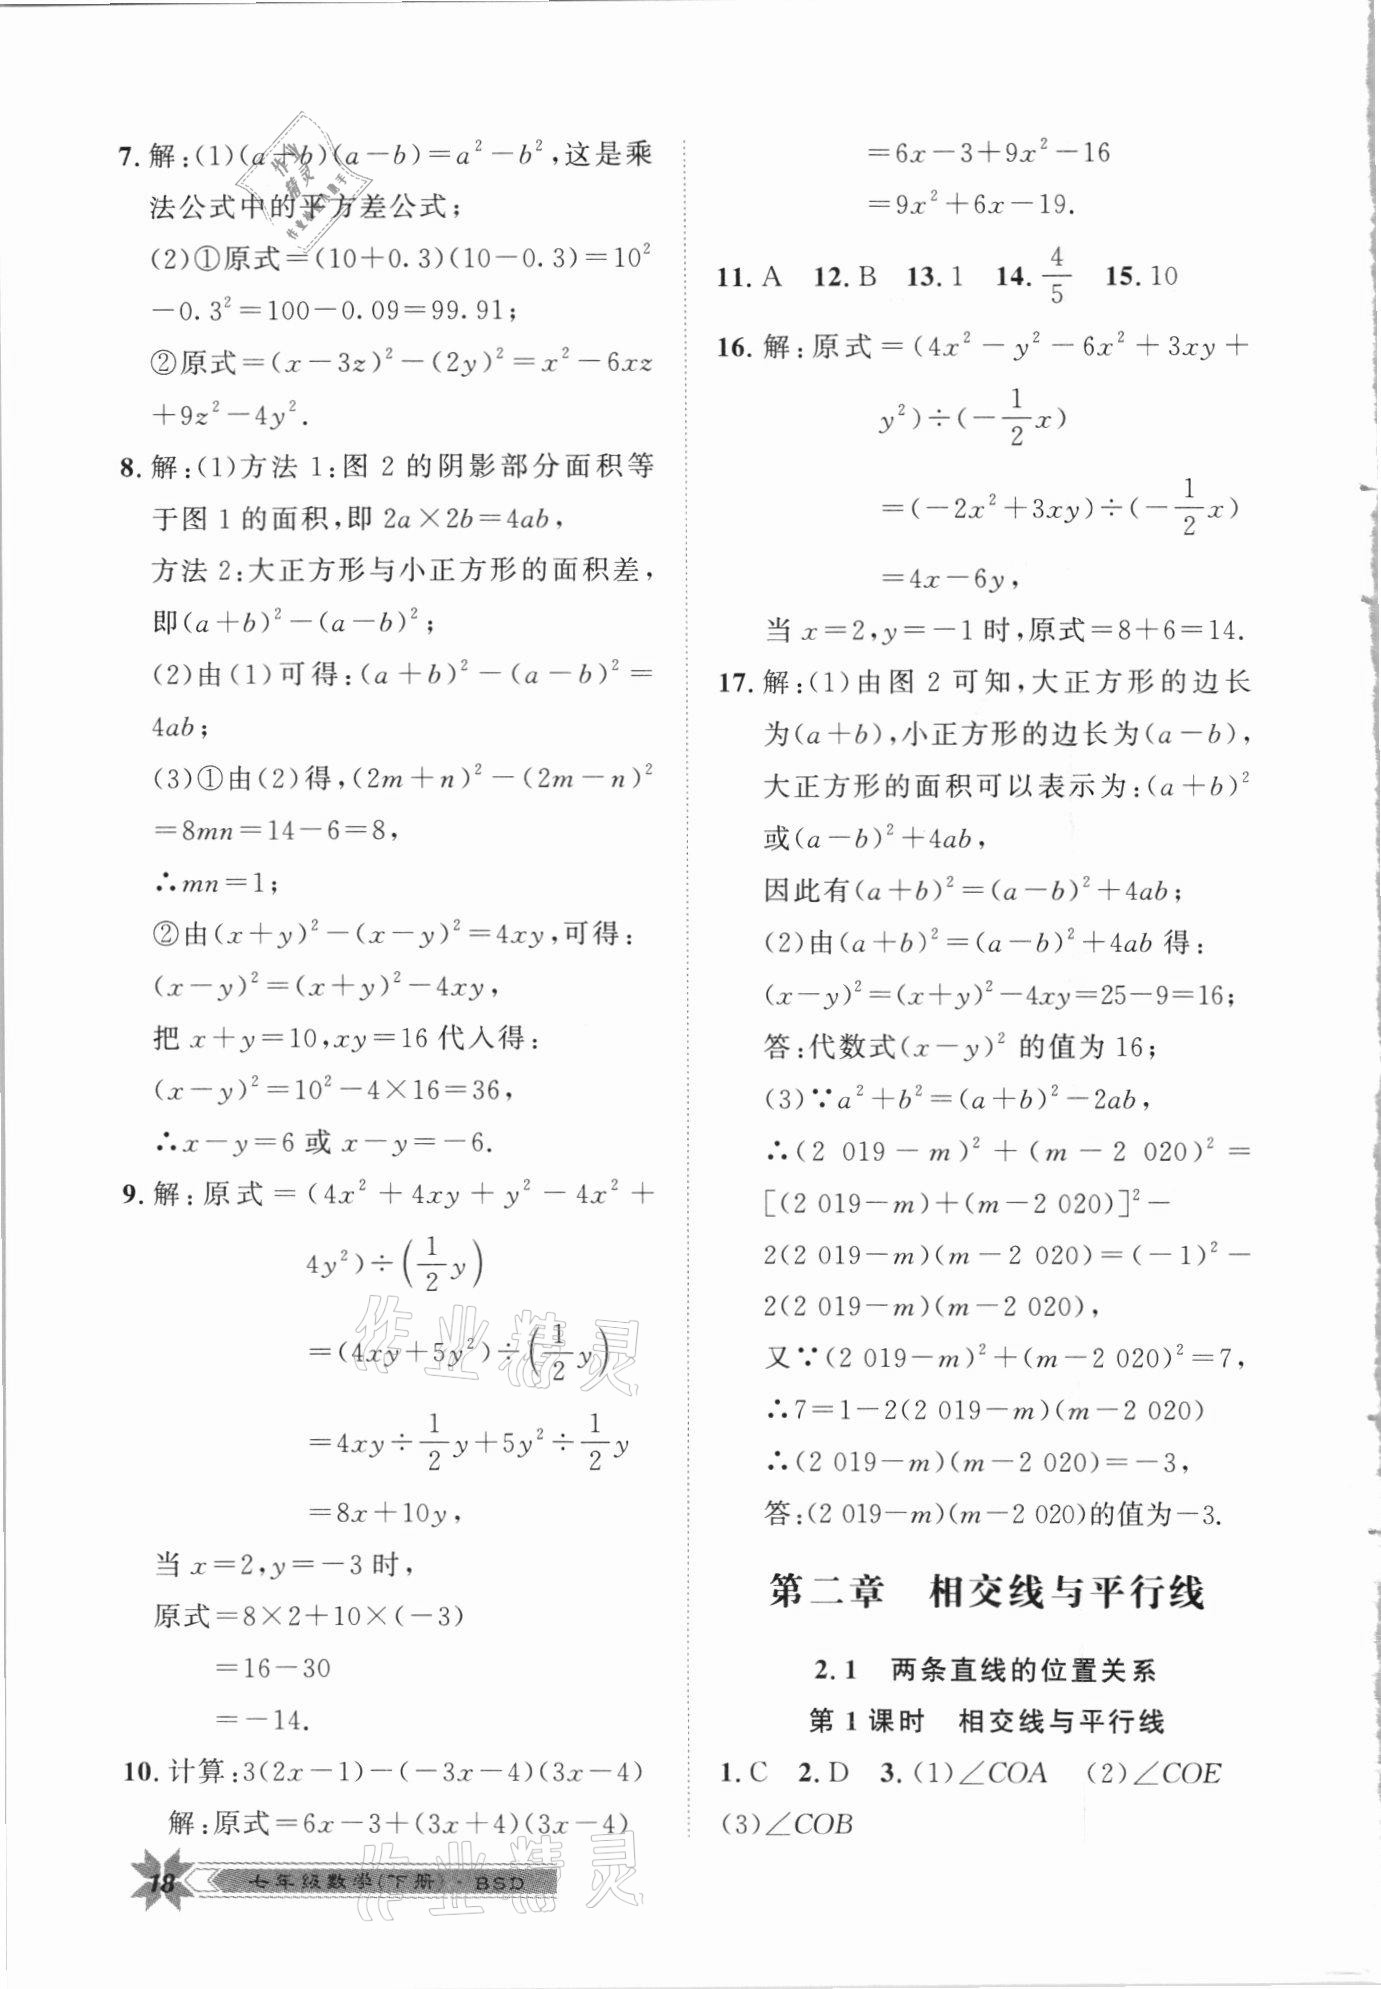 7. 解:(1)(a+b)(a-b)=a²-b²,这是乘
法公式中的平方差公式;
(2)①原式=(10+0.3)(10-0.3)=10²
-0.3²=100-0.09=99.91;
②原式=(x-3z)²-(2y)²=x²-6xz
+9z²-4y².
8. 解:(1)方法1:图2的阴影部分面积等
于图1的面积,即2a×2b=4ab,
方法2:大正方形与小正方形的面积差,
即(a+b)²-(a-b)²;
(2)由(1)可得:(a+b)²-(a-b)²=
4ab;
(3)①由(2)得,(2m+n)²-(2m-n)²
=8mn=14-6=8,
∴mn=1;
②由(x+y)²-(x-y)²=4xy,可得:
(x-y)²=(x+y)²-4xy,
把x+y=10,xy=16代入得:
(x-y)²=10²-4×16=36,
∴x-y=6或x-y=-6.
9. 解:原式=(4x²+4xy+y²-4x²+
4y²)÷(1/2 y)
=(4xy+5y²)÷(1/2 y)
=4xy÷1/2 y+5y²÷1/2 y
=8x+10y,
当x=2,y=-3时,
原式=8×2+10×(-3)
=16-30
=-14.
10. 计算:3(2x-1)-(-3x-4)(3x-4)
解:原式=6x-3+(3x+4)(3x-4)
=6x-3+9x²-16
=9x²+6x-19.
11. A 12. B 13. 1 14. 4/5 15. 10
16. 解:原式=(4x²-y²-6x²+3xy+
y²)÷(-1/2 x)
=(-2x²+3xy)÷(-1/2 x)
=4x-6y,
当x=2,y=-1时,原式=8+6=14.
17. 解:(1)由图2可知,大正方形的边长
为(a+b),小正方形的边长为(a-b),
大正方形的面积可以表示为:(a+b)²
或(a-b)²+4ab,
因此有(a+b)²=(a-b)²+4ab;
(2)由(a+b)²=(a-b)²+4ab得:
(x-y)²=(x+y)²-4xy=25-9=16;
答:代数式(x-y)²的值为16;
(3)∵a²+b²=(a+b)²-2ab,
∴(2 019-m)²+(m-2 020)²=
[(2 019-m)+(m-2 020)]²-
2(2 019-m)(m-2 020)=(-1)²-
2(2 019-m)(m-2 020),
又∵(2 019-m)²+(m-2 020)²=7,
∴7=1-2(2 019-m)(m-2 020)
∴(2 019-m)(m-2 020)=-3,
答:(2 019-m)(m-2 020)的值为-3.
第二章 相交线与平行线
2.1 两条直线的位置关系
第1课时 相交线与平行线
1. C 2. D 3. (1)∠COA (2)∠COE
(3)∠COB
18 七年级数学(下册)·BSD
作业精灵
作业精灵
作业精灵